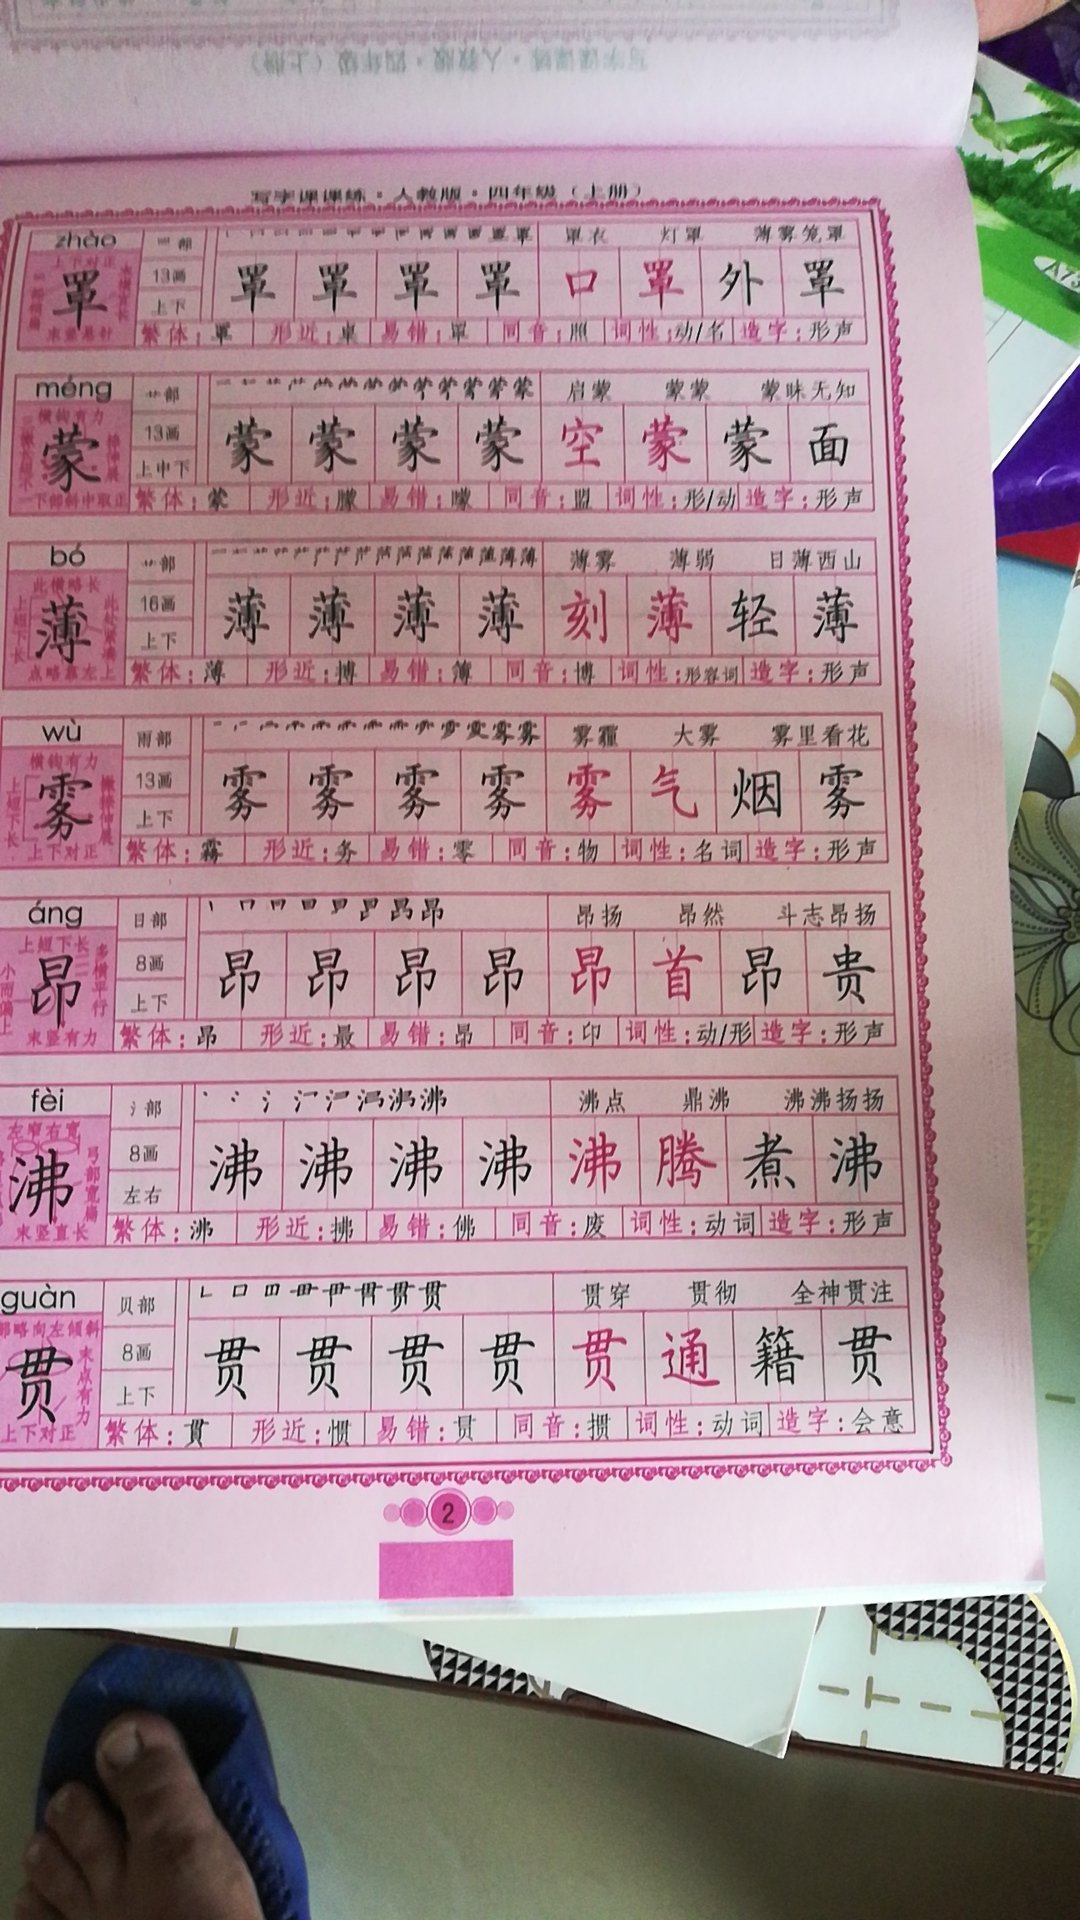 写字课课练·人教版·四年级（上册）
zhào 罒部 罩衣 灯罩 薄雾笼罩
上下对正
罩 13画 罩 罩 罩 罩 口 罩 外 罩
上下
末竖悬针
繁体:罩 形近:桌 易错:罩 同音:照 词性:动/名 造字:形声
méng 艹部 启蒙 蒙蒙 蒙昧无知
横钩有力
蒙 13画 蒙 蒙 蒙 蒙 空 蒙 蒙 面
上中下
下部斜中取正
繁体:蒙 形近:朦 易错:曚 同音:盟 词性:形/动 造字:形声
bó 艹部 薄雾 薄弱 日薄西山
此横略长
上短下长
薄 16画 薄 薄 薄 薄 刻 薄 轻 薄
上下
点略靠左上
繁体:薄 形近:搏 易错:簿 同音:博 词性:形容词 造字:形声
wù 雨部 雾霾 大雾 雾里看花
横钩有力
上短下长
雾 13画 雾 雾 雾 雾 雾 气 烟 雾
撇捺伸展
上下
上下对正
繁体:霧 形近:务 易错:零 同音:物 词性:名词 造字:形声
áng 日部 昂扬 昂然 斗志昂扬
上短下长
小而偏上
昂 8画 昂 昂 昂 昂 昂 首 昂 贵
多横平行
上下
末竖有力
繁体:昂 形近:最 易错:昂 同音:印 词性:动/形 造字:形声
fèi 氵部 丶 冫 氵 沸 沸点 鼎沸 沸沸扬扬
左窄右宽
沸 8画 沸 沸 沸 沸 沸 腾 煮 沸
弓部宽扁
左右
末竖直长
繁体:沸 形近:拂 易错:佛 同音:废 词性:动词 造字:形声
guàn 贝部 贯 贯 贯穿 贯彻 全神贯注
部略向左倾斜
贯 8画 贯 贯 贯 贯 贯 通 籍 贯
末点有力
上下
上下对正
繁体:貫 形近:惯 易错:贯 同音:掼 词性:动词 造字:会意
2